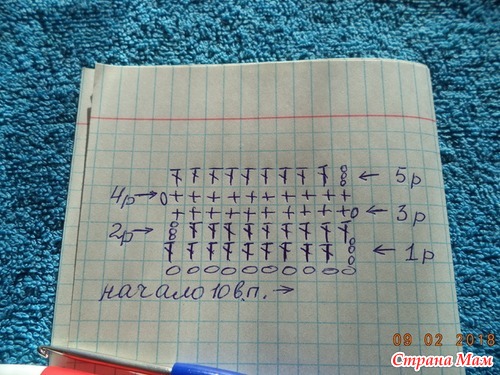 5р
4р
3р
2р
1р
начало 10 в.п.
09 02 2018
Страна Мам